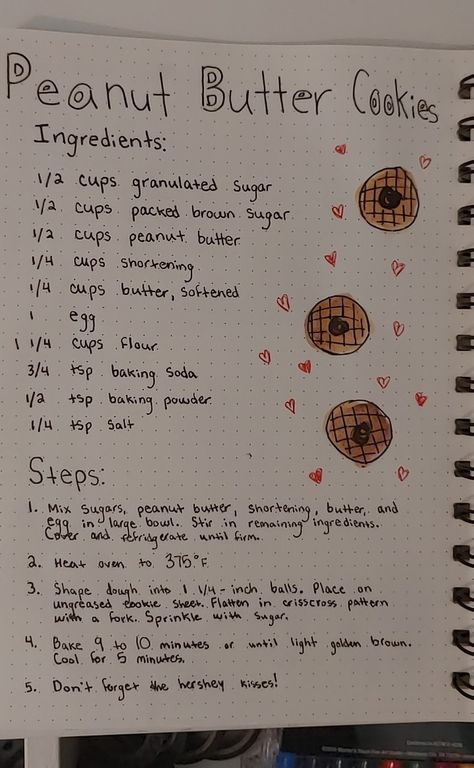 Peanut Butter Cookies
Ingredients:
1/2 cups granulated sugar
1/2 cups packed brown sugar
1/2 cups peanut butter
1/4 cups shortening
1/4 cups butter, softened
1 egg
1 1/4 cups flour
3/4 tsp baking soda
1/2 tsp baking powder
1/4 tsp salt
Steps:
1. Mix sugars, peanut butter, shortening, butter, and
egg in large bowl. Stir in remaining ingredients.
Cover and refridgerate until firm.
2. Heat oven to 375°F
3. Shape dough into 1 1/4-inch balls. Place on
ungreased cookie sheet. Flatten in crisscross pattern
with a fork. Sprinkle with sugar.
4. Bake 9 to 10 minutes or until light golden brown.
Cool for 5 minutes.
5. Don't forget the hershey kisses!